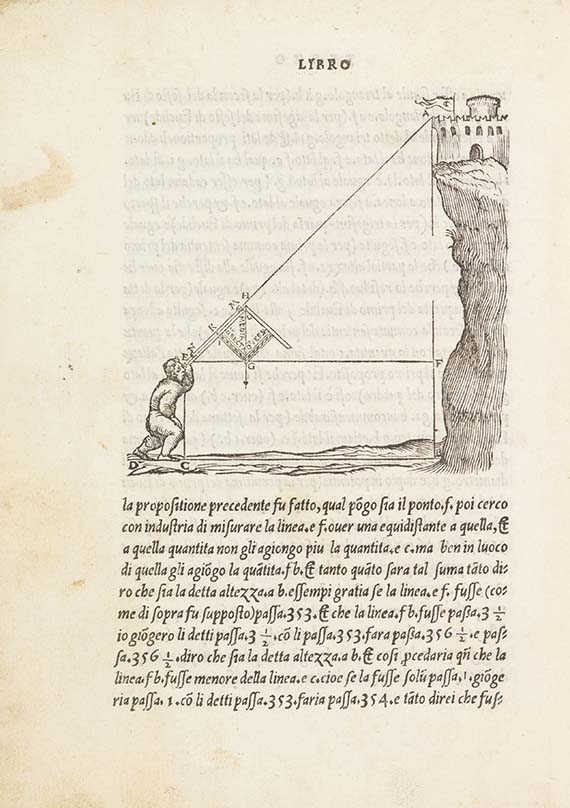 LIBRO
A
H
M
K
G
E
F
D
C
la propositione precedente fu fatto, qual põgo sia il ponto.f. poi cerco
con industria di misurare la linea.e f.ouer una equidistante a quella, &
a quella quantita non gli agiongo piu la quantita.e c.ma ben in luoco
di quella gli agiõgo la quãtita.f b.& tanto quãto sara tal suma tãto di-
ro che sia la detta altezza.a b.essempi gratia se la linea.e f. fusse (co-
me di sopra fu supposto)passa.353.& che la linea.f b.fusse passa.3 1/2
io giõgero li detti passa.3 1/2.cõ li passa.353.fara passa.356 1/2.e pas-
sa.356 1/2.diro che sia la detta altezza.a b.& cosi ꝓcedaria qñ che la
linea.f b.fusse menore della linea.e c.cioe se la fusse solũ passa.1.giõge
ria passa. 1.cõ li detti passa.353.faria passa.354.e tãto direi che fus-